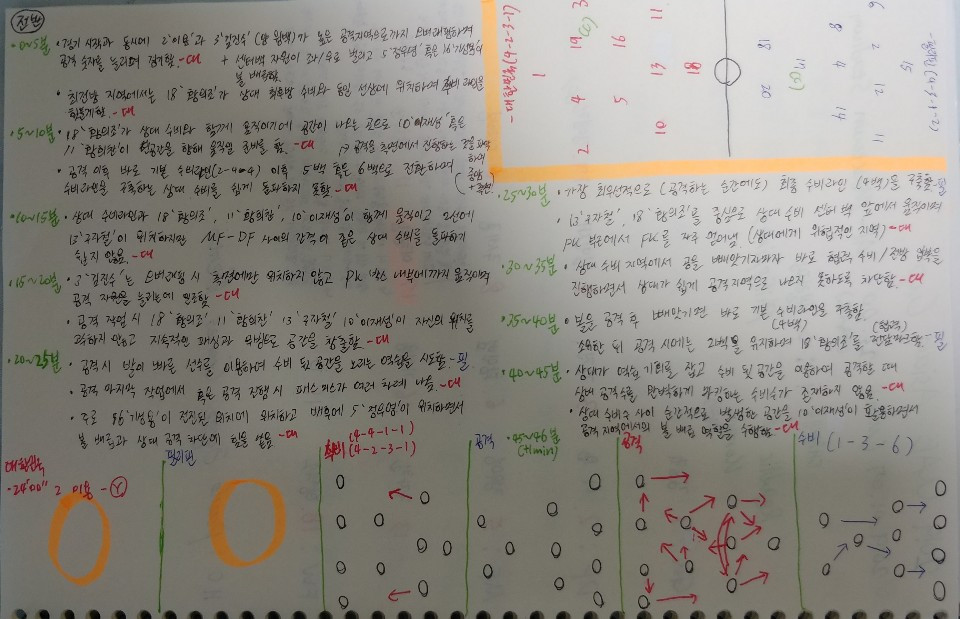 전반
·0~5분 · 경기 시작과 동시에 2'이용'과 3'김진수'(양 윙백)가 높은 공격지역으로까지 오버래핑하며
공격 숫자를 늘리며 전개함. -대 + 센터백 자원이 좌/우로 벌리고 5'정우영' 혹은 16'기성용'이
볼 배급함.
· 최전방 지역에서는 18'황의조'가 상대 최후방 수비와 동일 선상에 위치하며 수비 라인을
-대
·5~10분 · 18'황의조'가 상대 수비와 함께 움직이기에 공간이 나오는 곳으로 10'이재성' 혹은
11'황희찬'이 빈공간을 향해 움직일 준비를 함. -대
· 공격 이후 바로 기본 수비라인(2-4-4) 이후 5백 혹은 6백으로 전환하며
수비라인을 구축하는 상대 수비를 쉽게 돌파하지 못함 -대
·10~15분 · 상대 수비라인과 18'황의조', 11'황희찬', 10'이재성'이 함께 움직이고 2선에
13'구자철'이 위치하지만 MF-DF 사이의 간격이 좁은 상대 수비를 돌파하기
쉽지 않음. -대
·15~20분 · 3'김진수'는 오버래핑 시 측면에만 위치하지 않고 PK 박스 안쪽에까지 움직이며
공격 자원을 늘리는데 -대
· 공격 작업 시 18'황의조' 11'황희찬' 13'구자철' 10'이재성'이 자신의 위치를
고수하지 않고 지속적인 패싱과 움직임으로 공간을 창출함 -대
·20~25분 · 공격 시 발이 빠른 선수를 이용하여 수비 뒷 공간을 노리는 역습을 시도함. -필
· 공격 마지막 작업에서 혹은 공격 진행 시 패스미스가 여러 차례 나옴. -대
· 주로 16'기성용'이 전진된 위치에 위치하고 배후에 5'정우영'이 위치하면서
볼 배급과 상대 공격 차단에 힘을 씀음 -대
-대한민국(4-2-3-1)
1
2 4 19 3
5 16
10 13 11
18
-필리핀(4-5-1)
·25~30분 · 가장 최우선적으로 (공격하는 순간에도) 최종 수비라인 (4백)을 구축함 -필
· 13'구자철', 18'황의조'를 중심으로 상대 수비 센터백 앞에서 움직이며
PK 박스 밖에서 FK를 자주 얻어냄 (상대에게 위협적인 지역) -대
·30~35분 · 상대 수비 지역에서 공을 빼앗기자마자 바로 협력 수비/전방 압박을
진행하면서 상대가 쉽게 공격지역으로 나오지 못하도록 차단함. -대
·35~40분 · 볼을 공격 후 빼앗기면 바로 기본 수비라인을 구축함.
(4백) (협력)
소유한 뒤 공격 시에는 2백을 위치하며 18'황의조'를 -필
·40~45분 · 상대가 역습 기회를 잡고 수비 뒷 공간을 이용하여 공격할 때
상대 공격수를 완벽하게 마킹하는 수비수가 존재하지 않음. -대
· 상대 수비수 사이 순간적으로 발생한 공간을 10'이재성'이 활용하면서
공격 지역에서의 볼 배급 역할을 수행함 -대
·45~46분
(+1min)
대한민국
-24'00" 2 이용 - Y
필리핀
수비 (4-4-1-1)
(4-2-3-1)
공격
공격
수비 (1-3-6)